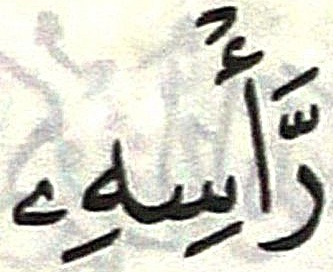 رَّأۡسِهِۦ